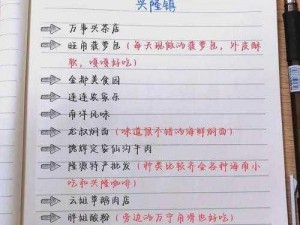 兴隆镇
万事兴茶店
旺角菠萝包（每天现做的菠萝包，外皮酥
软，嘎嘎好吃）
金都美食园
连连农家乐
南洋风味
龙叔焖面（味道很不错的海鲜焖面）
德辉定安仙沟牛肉
隆源特产批发（种类比较齐全各种海南小
吃和兴隆咖啡）
云姐草鹅肉店
胖妹酸粉（旁边的万宁角嘈也好吃）